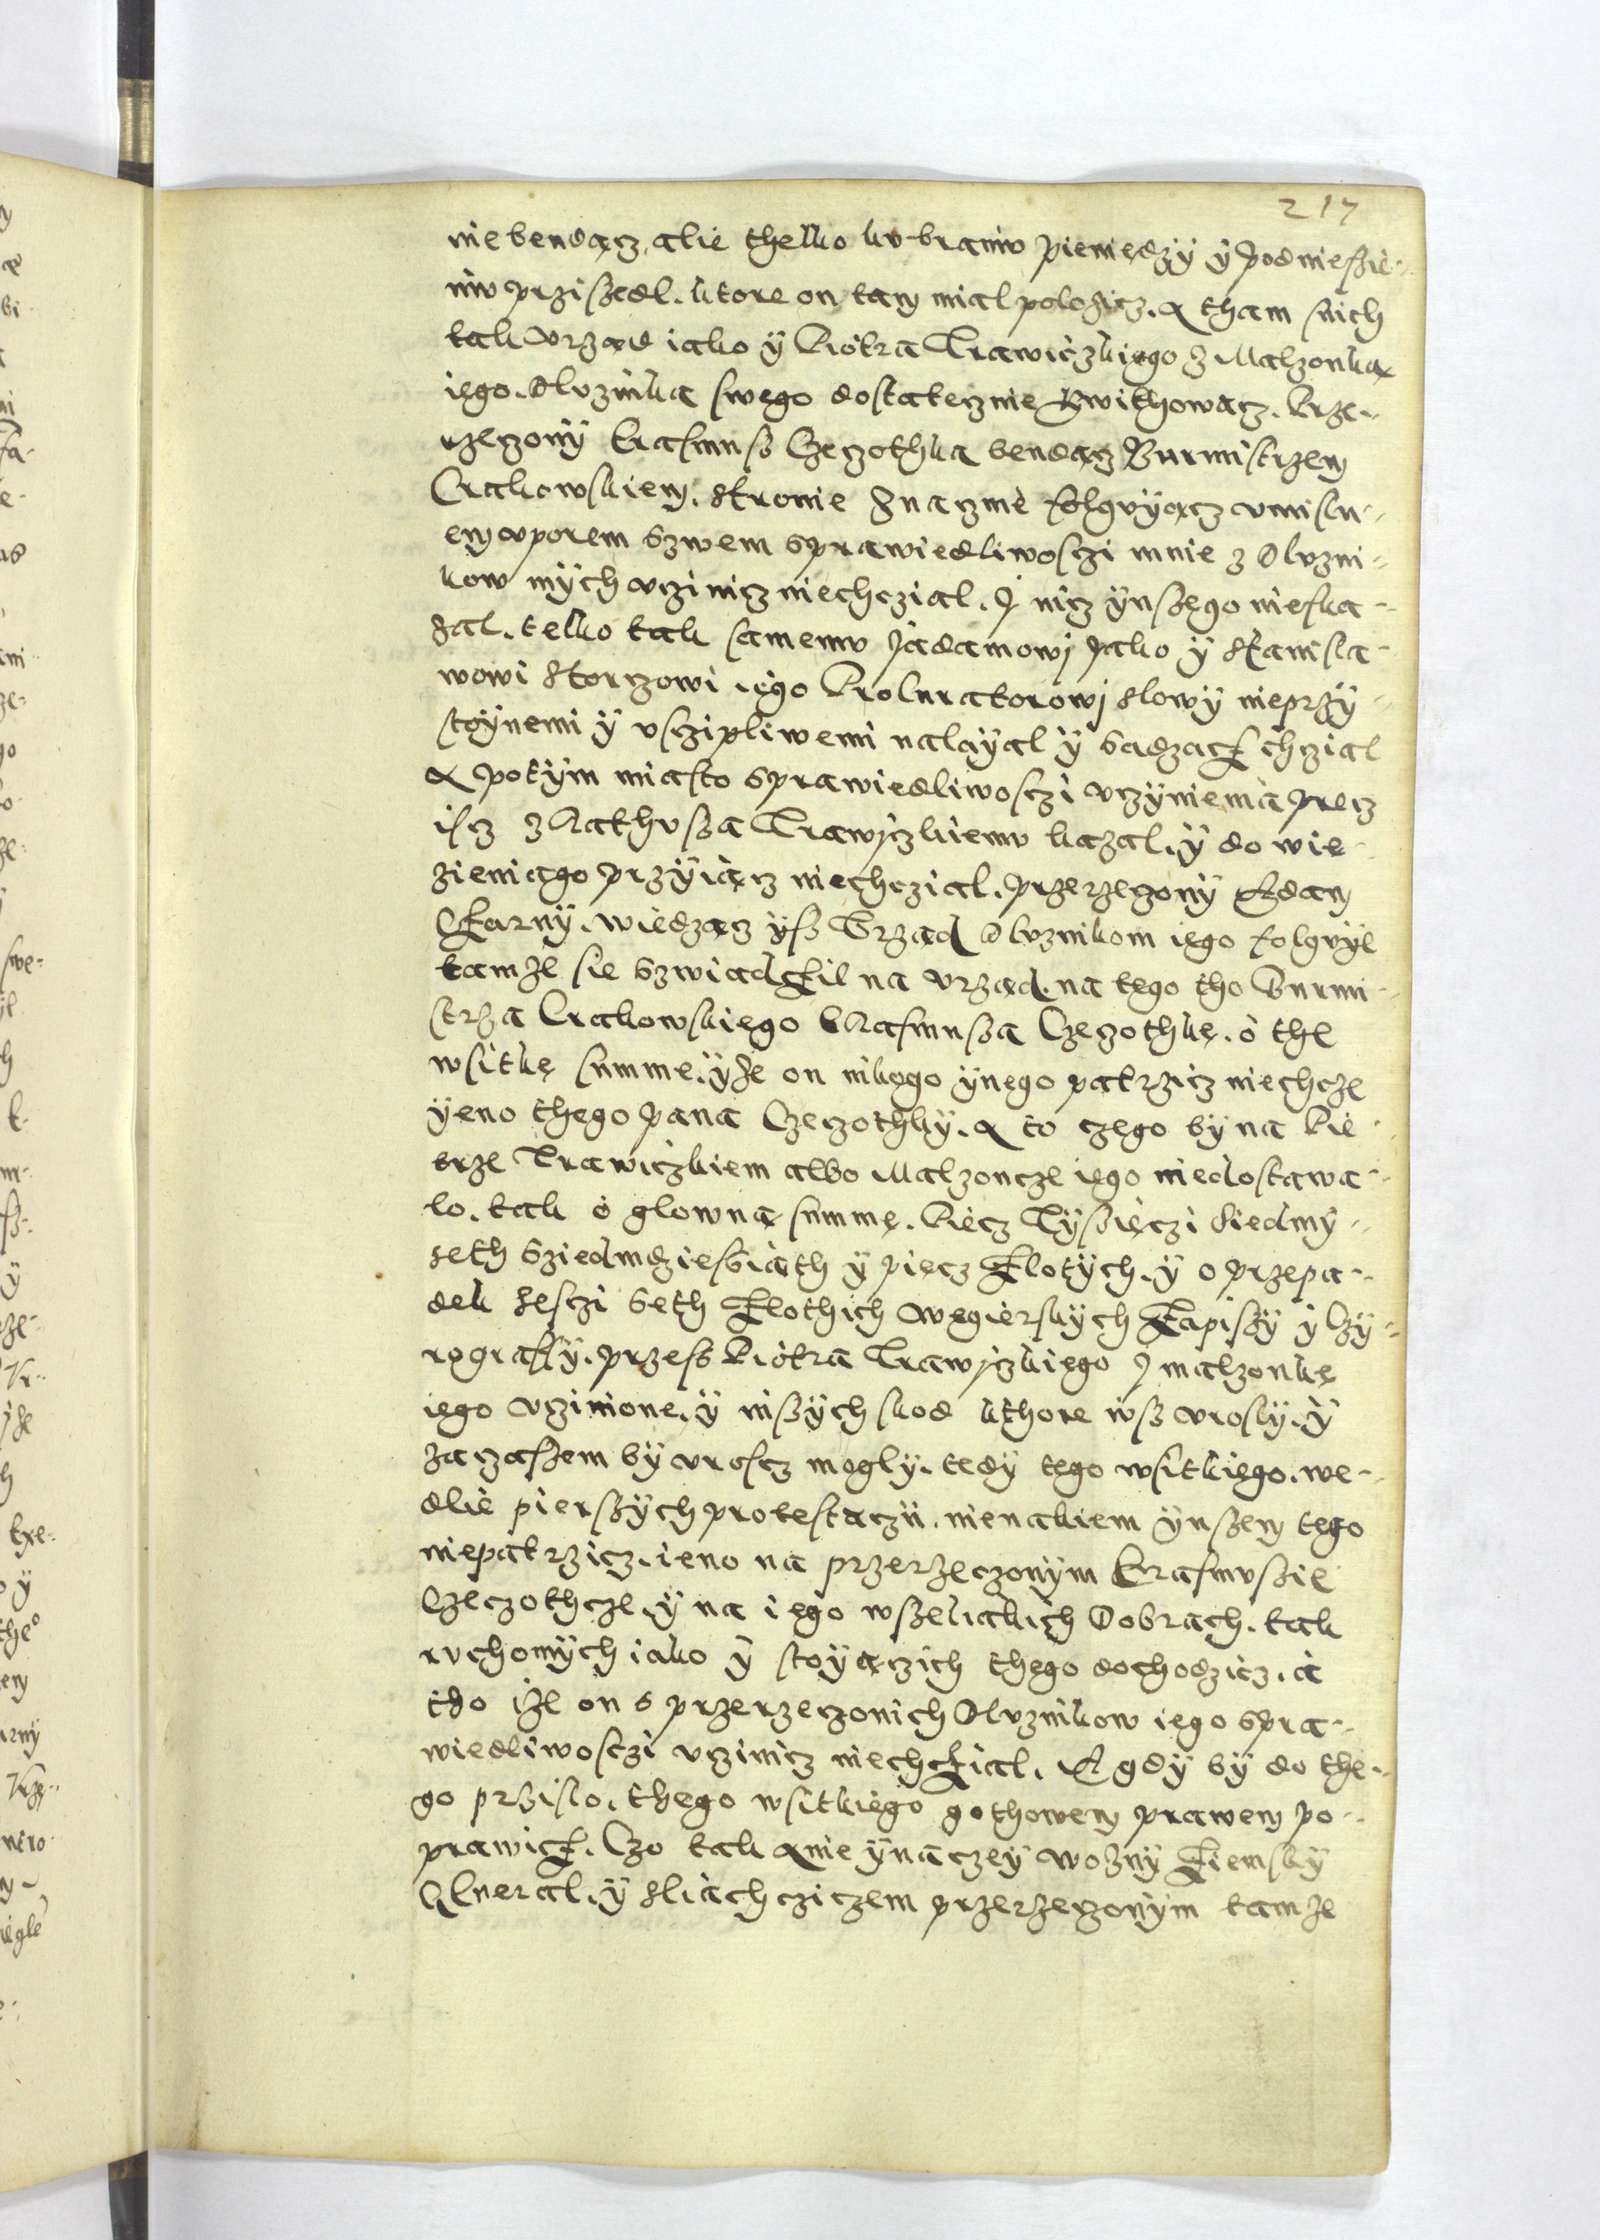 217
nie bendącz, alie thelko ku braniu pieniędzÿ ÿ Podnieszie-
niu prziszedl. ktore on tam mial polozicz. A tham snich
tak Vrząd iako ÿ Piotra Krawiczkiego z Malzonką
iego. Dluznika swego dostatecznie kwithowacz. Prze-
rzeczonÿ Erasmus Czeczothka bendącz Burmistrzem
Crakowskiem. stronie znacznie folguÿącz vmisln-
em vporem szwem sprawiedliwosczi mnie z Dluzni-
kow mÿch vczinicz niechczial. J nicz ÿnszego nieska-
zal. telko tak samemu Jadamowj Jako ÿ Stanisla-
wowi Storczowi iego Prokuratorowj slowÿ nieprzÿ-
stoÿnemi ÿ vsczipliwemi nalaÿal ÿ sadzacz chczial
A potÿm miasto sprawiedliwosczi vczÿnienia precz
iscz z Rathusza Krawjczkiemu kazal. ÿ do wie-
zienia go przÿiącz niechczial. Przerzeczonÿ Adam
Czarnÿ. wiedzącz ÿsz Vrząd Dluznikom iego folguÿe
tamze sie szwiadczil na vrząd. na tego tho Burmi-
strza Crakowskiego Erasmusza Czeczothkę. o the
wsitkę summe. ÿze on nikogo ÿnego patrzicz niechcze
ÿeno thego Pana Czeczothkÿ. A to czego bÿ na Pie-
trze Krawiczkiem albo Malzoncze iego niedostawa-
lo. tak o glowną summę. Piecz Tÿsięczi siedmÿ-
seth sziedmdziesiąth ÿ piecz zlotÿch. ÿ o przepa-
dek szesczi seth zlothich Węgierskÿch zapiszÿ ÿ Czÿ-
rograffÿ. przess Piotra Krawjczkiego J malzonkę
iego vczinione. ÿ inszÿch skod kthore iusz vroslÿ. ÿ
zaczaszem bÿ vroscz moglÿ. tedÿ tego wsitkiego. we-
dlie pierszÿch protestaczii. nienakiem ÿnszem tego
niepatrzicz. ieno na przerzeczonÿm Erasmuszie
Czeczothcze. ÿ na iego wszeliakich Dobrach. tak
ruchomÿch iako ÿ stoÿączich thego dochodzicz. a
tho ize on s przerzeczonich Dluznikow iego spra-
wiedliwosczi vczinicz niechczial. A gdÿ bÿ do the-
go przislo. thego wsitkiego gothowem prawem po-
prawicz. Czo tak A nie ÿnaczeÿ Woznÿ Ziemskÿ
General. ÿ sliachcziczem przerzeczonÿm tamze